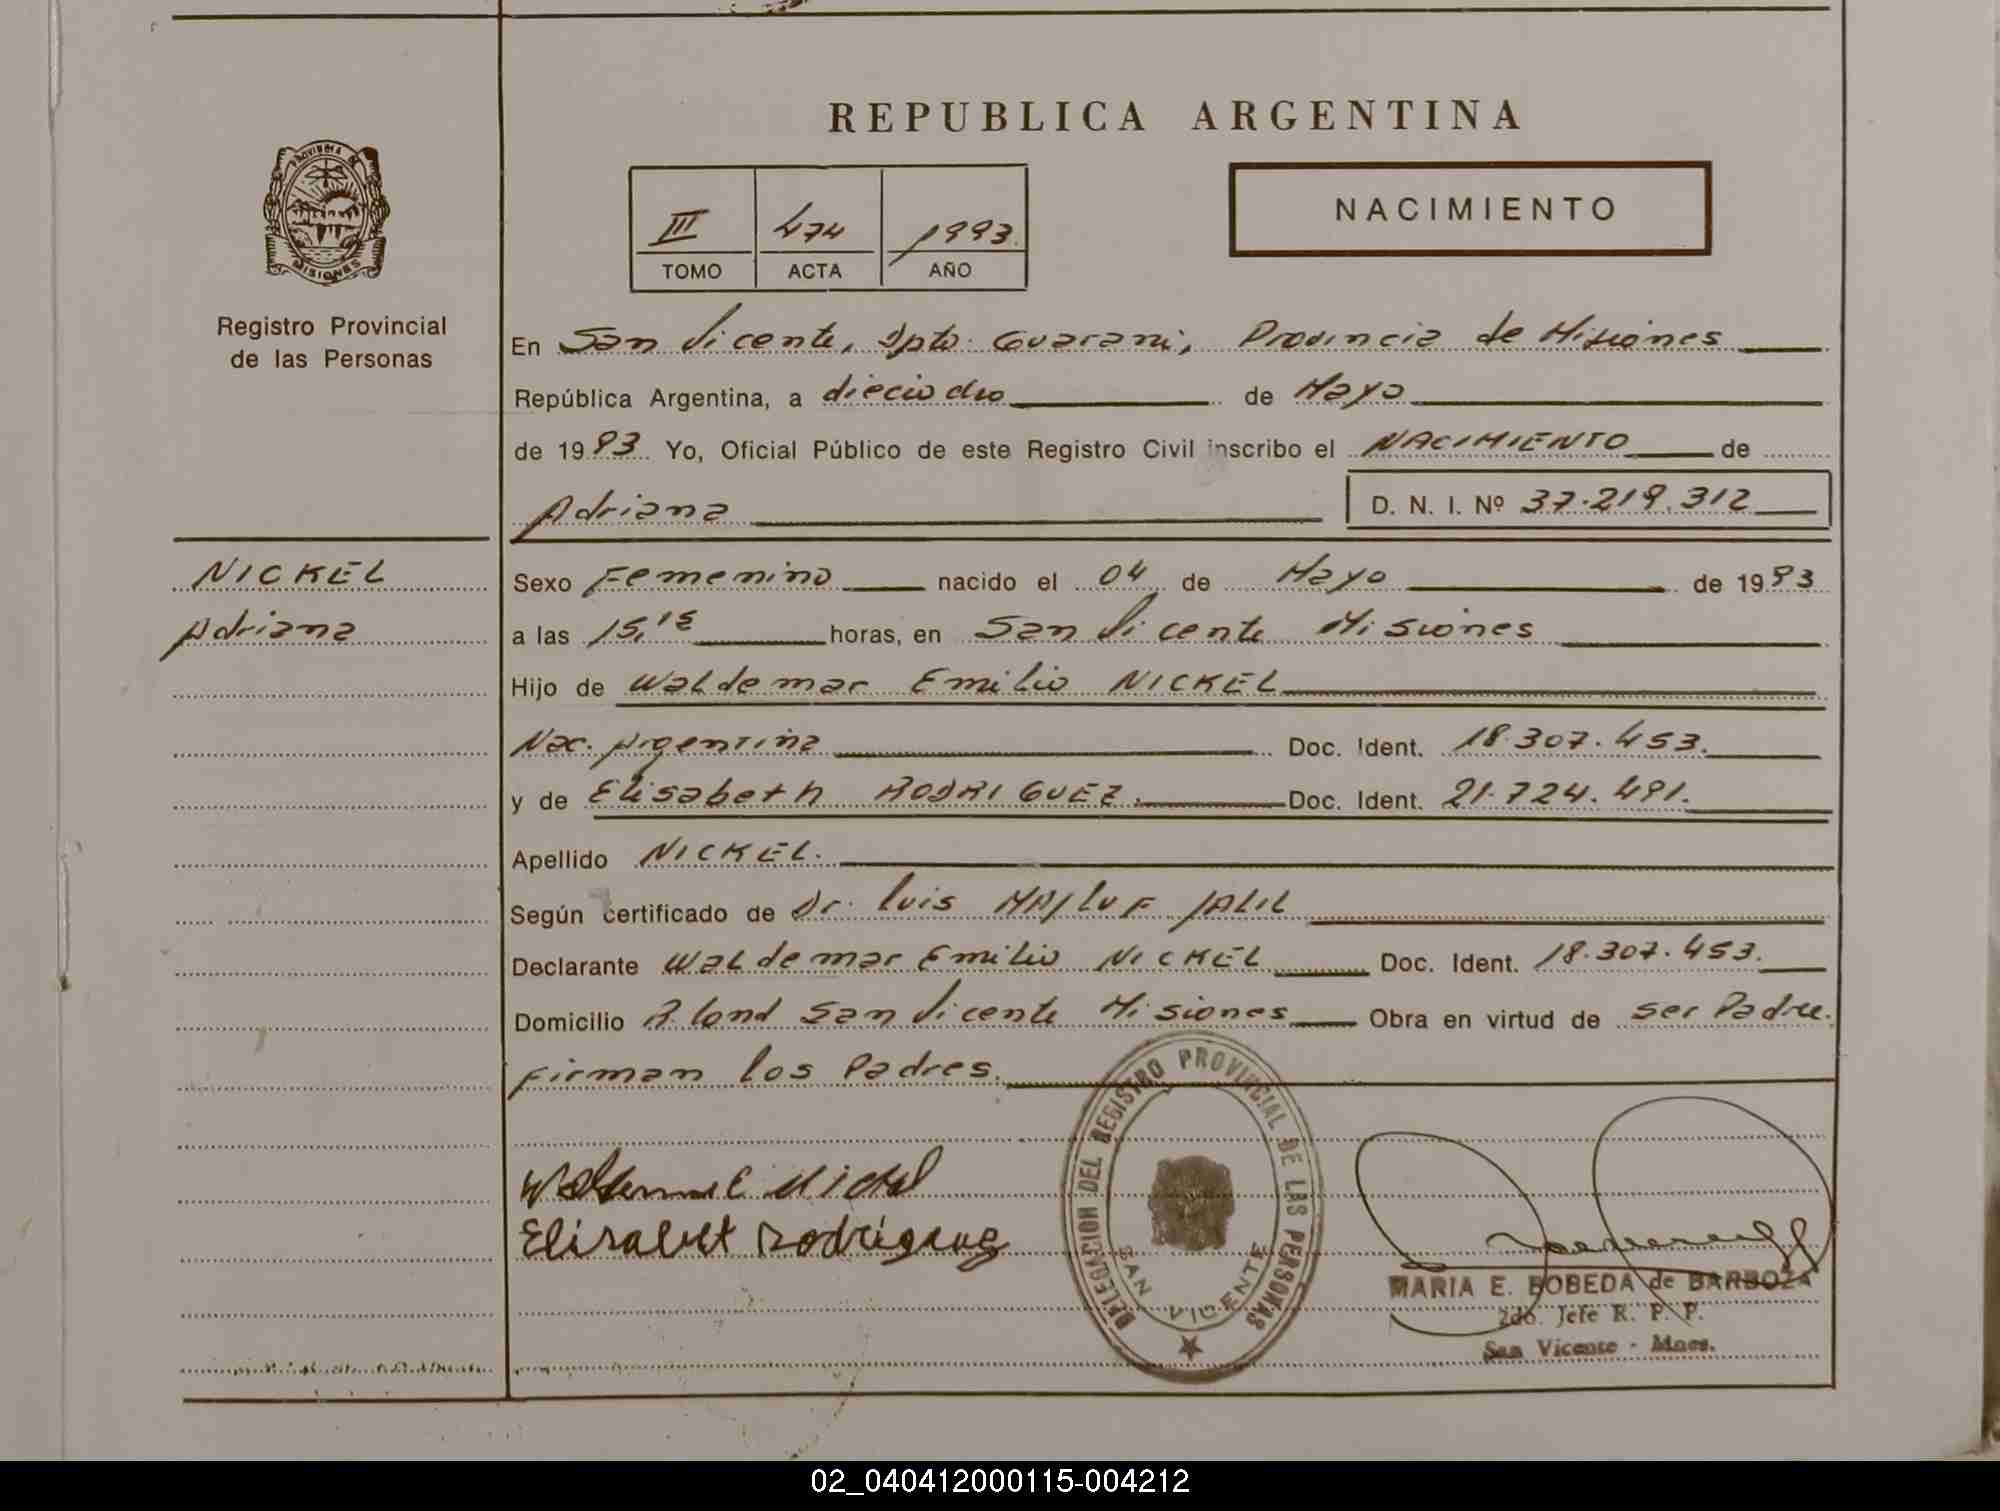 PROVINCIA DE
MISIONES
Registro Provincial
de las Personas
NICKEL
Adriana
REPUBLICA ARGENTINA
III 474 1993
TOMO ACTA AÑO
NACIMIENTO
En San Vicente, Dpto. Guarani, Provincia de Misiones
República Argentina, a dieciocho de Mayo
de 1993 Yo, Oficial Público de este Registro Civil inscribo el NACIMIENTO de
Adriana D. N. I. Nº 37.219.312
Sexo Femenino nacido el 04 de Mayo de 1993
a las 15,15 horas, en San Vicente Misiones
Hijo de Waldemar Emilio NICKEL
Nac. Argentina Doc. Ident. 18.307.453.
y de Elisabeth RODRIGUEZ. Doc. Ident. 21.724.491.
Apellido NICKEL.
Según certificado de Dr. Luis MAJLUF JALIL
Declarante Waldemar Emilio NICKEL Doc. Ident. 18.307.453.
Domicilio San Vicente Misiones Obra en virtud de ser Padre.
Firman los Padres.
DELEGACION DEL REGISTRO PROVINCIAL DE LAS PERSONAS
SAN VICENTE
Nickel
Elisabet Rodriguez
MARIA E. BOBEDA de BARBOZA
2do. Jefe R. P. P.
San Vicente - Mnes.
02_040412000115-004212